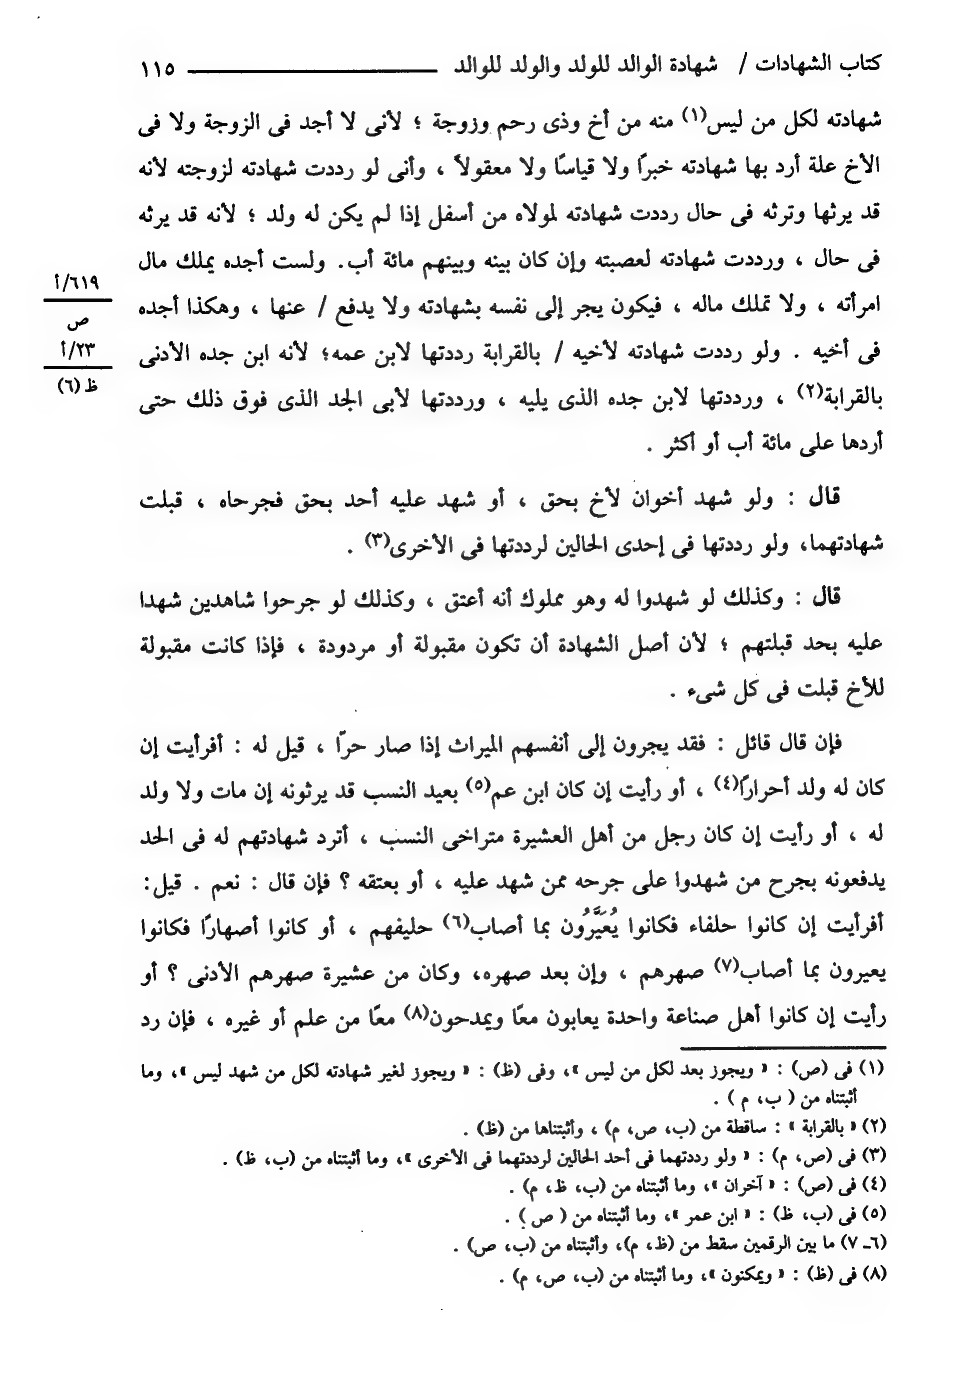 كتاب الشهادات / شهادة الوالد للولد والولد للوالد ١١٥
شهادته لكل من ليس(١) منه من أخ وذى رحم وزوجة ؛ لأنى لا أجد فى الزوجة ولا فى
الأخ علة أرد بها شهادته خبرًا ولا قياسًا ولا معقولاً ، وأنى لو رددت شهادته لزوجته لأنه
قد يرثها وترثه فى حال رددت شهادته لمولاه من أسفل إذا لم يكن له ولد ؛ لأنه قد يرثه
فى حال ، ورددت شهادته لعصبته وإن كان بينه وبينهم مائة أب. ولست أجده يملك مال
امرأته ، ولا تملك ماله ، فيكون يجر إلى نفسه بشهادته ولا يدفع / عنها ، وهكذا أجده
فى أخيه . ولو رددت شهادته لأخيه / بالقرابة رددتها لابن عمه؛ لأنه ابن جده الأدنى
بالقرابة(٢) ، ورددتها لابن جده الذى يليه ، ورددتها لأبى الجد الذى فوق ذلك حتى
أردها على مائة أب أو أكثر .
٦١٩/أ
ص
٢٣/أ
ظ (٦)
قال : ولو شهد أخوان لأخ بحق ، أو شهد عليه أحد بحق فجرحاه ، قبلت
شهادتهما، ولو رددتها فى إحدى الحالين لرددتها فى الأخرى(٣) .
قال : وكذلك لو شهدوا له وهو مملوك أنه أعتق ، وكذلك لو جرحوا شاهدين شهدا
عليه بحد قبلتهم ؛ لأن أصل الشهادة أن تكون مقبولة أو مردودة ، فإذا كانت مقبولة
للأخ قبلت فى كل شىء .
فإن قال قائل : فقد يجرون إلى أنفسهم الميراث إذا صار حرًا ، قيل له : أفرأيت إن
كان له ولد أحرارًا(٤) ، أو رأيت إن كان ابن عم(٥) بعيد النسب قد يرثونه إن مات ولا ولد
له ، أو رأيت إن كان رجل من أهل العشيرة متراخى النسب ، أترد شهادتهم له فى الحد
يدفعونه بجرح من شهدوا على جرحه ممن شهد عليه ، أو بعتقه ؟ فإن قال : نعم . قيل:
أفرأيت إن كانوا حلفاء فكانوا يُعَيَّرُون بما أصاب(٦) حليفهم ، أو كانوا أصهارًا فكانوا
يعيرون بما أصاب(٧) صهرهم ، وإن بعد صهره، وكان من عشيرة صهرهم الأدنى ؟ أو
رأيت إن كانوا أهل صناعة واحدة يعابون معًا ويمدحون(٨) معًا من علم أو غيره ، فإن رد
(١) فى (ص) : « ويجوز بعد لكل من ليس »، وفى (ظ) : « ويجوز لغير شهادته لكل من شهد ليس »، وما
أثبتناه من ( ب، م ) .
(٢) « بالقرابة » : ساقطة من (ب، ص، م) ، وأثبتناها من (ظ) .
(٣) فى (ص، م) : « ولو رددتهما فى أحد الحالين لرددتهما فى الأخرى »، وما أثبتناه من (ب، ظ) .
(٤) فى (ص) : « آخران »، وما أثبتناه من (ب، ظ، م) .
(٥) فى (ب، ظ) : « ابن عمر »، وما أثبتناه من ( ص ) .
(٦ـ ٧) ما بين الرقمين سقط من (ظ، م)، وأثبتناه من (ب، ص) .
(٨) فى (ظ) : « ويمكنون »، وما أثبتناه من (ب، ص، م) .